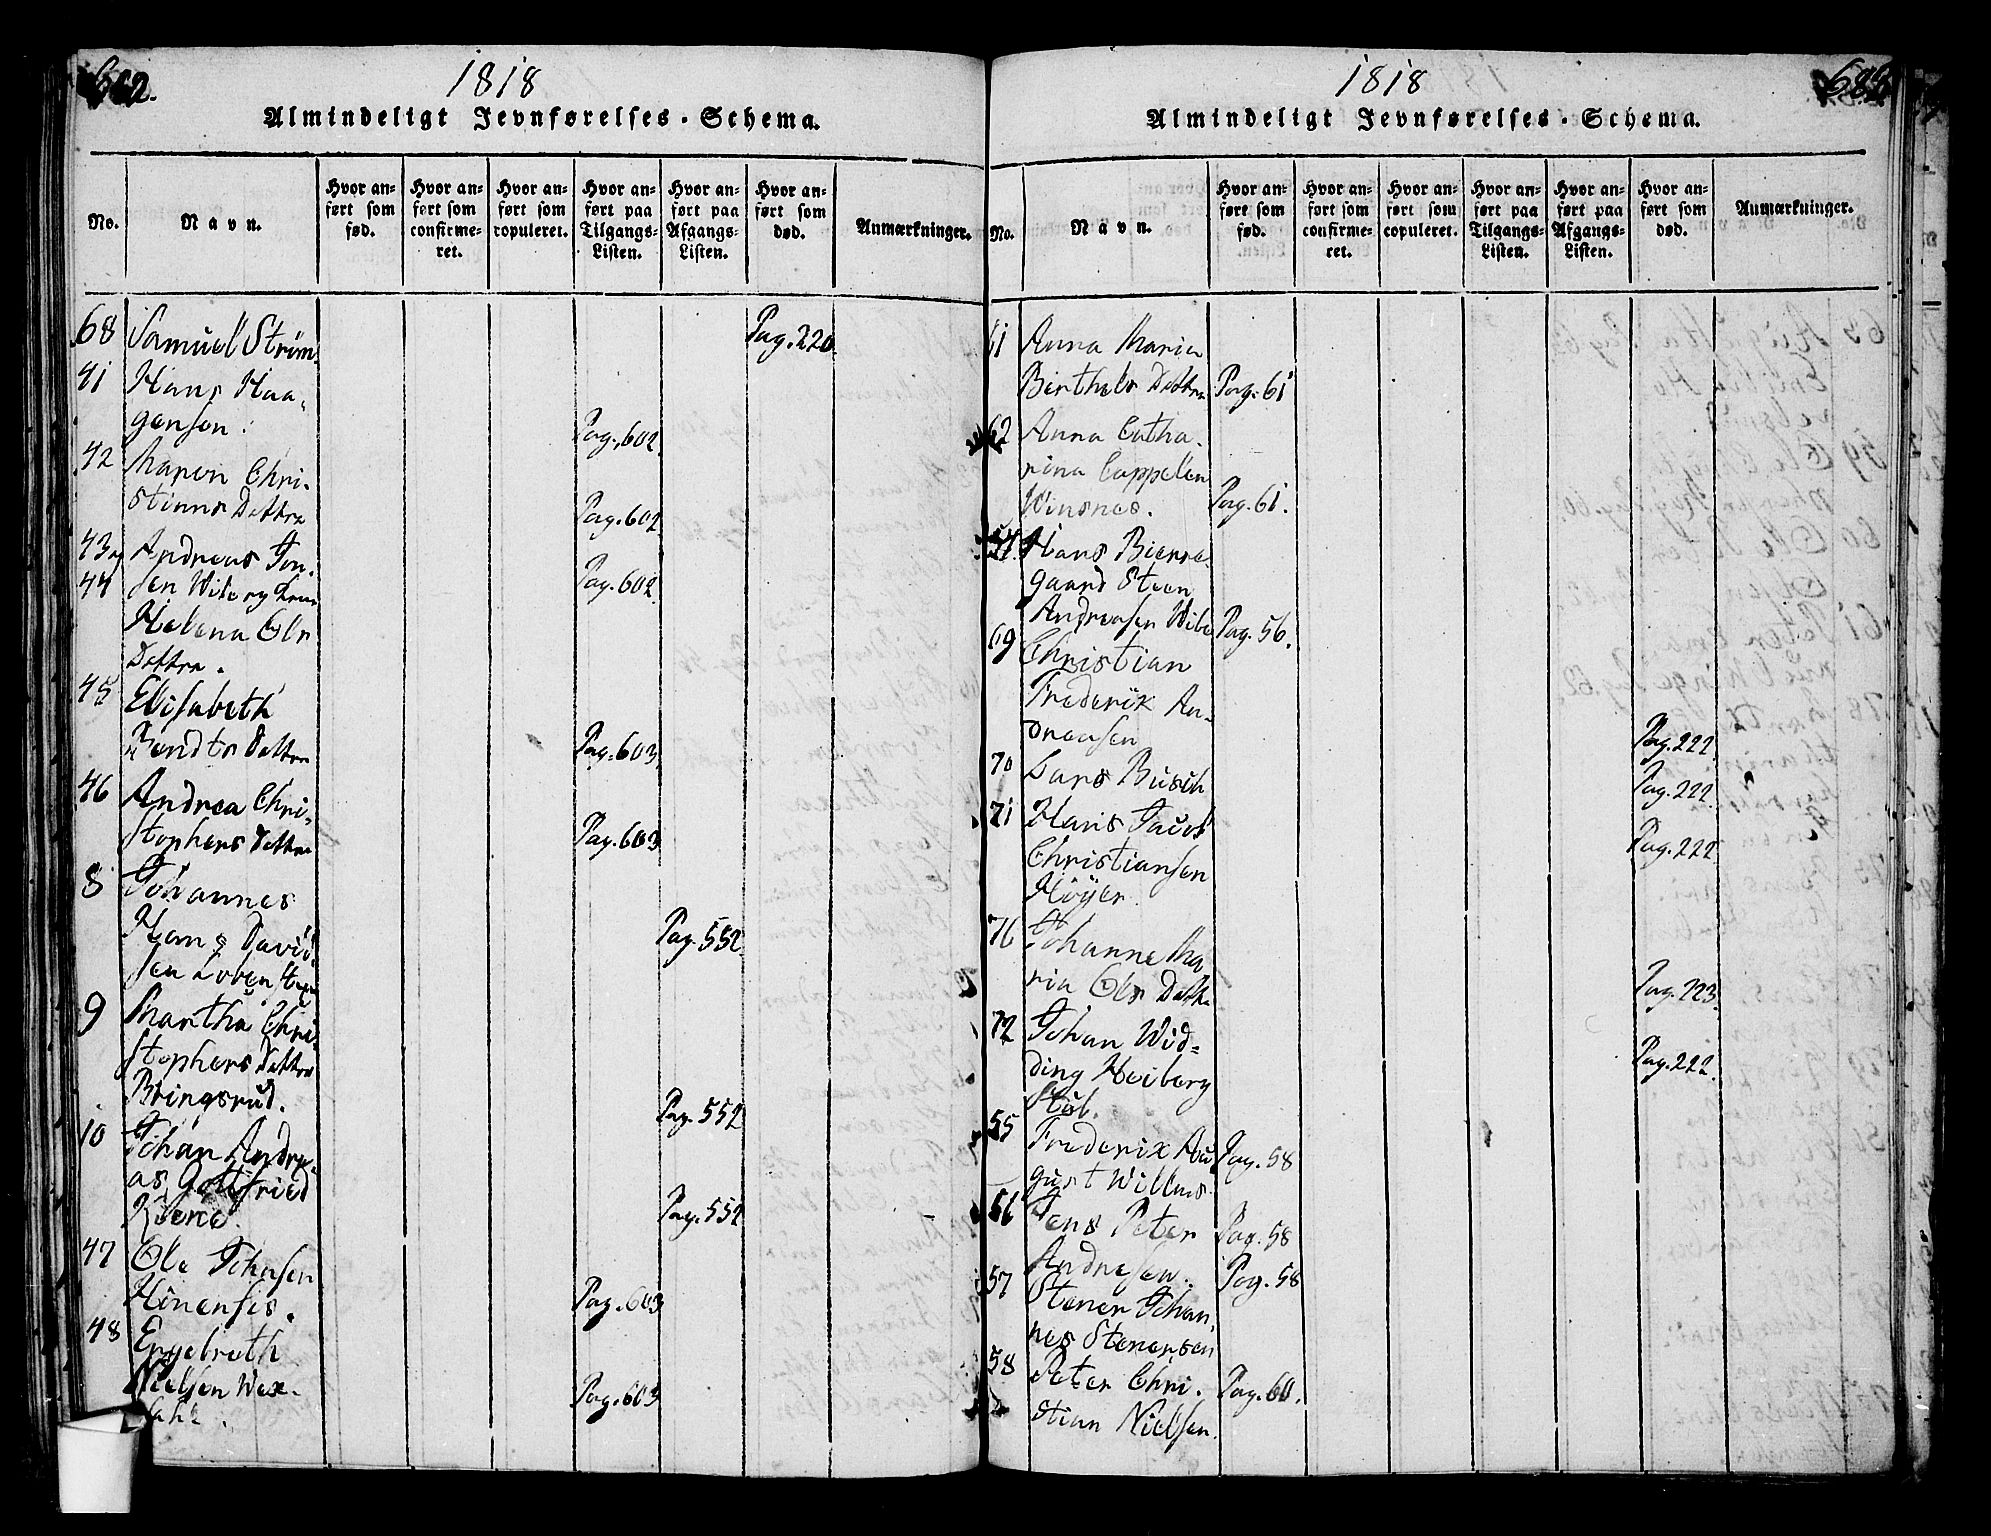 1818
Almindeligt Jevnførelses-Schema.
No.
Navn.
Hvor an-
ført som
fød.
Hvor an-
ført som
confirme-
ret.
Hvor an-
ført som
copuleret.
Hvor an-
ført paa
Tilgangs-
Listen.
Hvor an-
ført paa
Afgangs-
Listen.
Hvor an-
ført som
død.
Anmærkninger.
68 Samuel Strøm Pag. 220
41 Hans Haa-
gensen. Pag. 602
42 Maren Chri-
stians Dattre Pag. 602
43 Andreas Jon-
44 sen Wibe og Pag. 602
Helena Ols
Dattre.
45 Elisabeth
Bendts Dattre Pag. 603
46 Andrea Chri-
stophers Dattre Pag. 603
8 Johannes
Hans David- Pag. 552
sen
9 Martha Chri-
stophers Dattre
Bringsrud. Pag. 552
10 Johan Andre-
as Gottfried
Pag. 552
47 Ole Johnsen
Pag. 603
48 Engebreth
Nielsen Wex-
Pag. 603
1818
Almindeligt Jevnførelses-Schema.
No.
Navn.
Hvor an-
ført som
fød.
Hvor an-
ført som
confirme-
ret.
Hvor an-
ført som
copuleret.
Hvor an-
ført paa
Tilgangs-
Listen.
Hvor an-
ført paa
Afgangs-
Listen.
Hvor an-
ført som
død.
Anmærkninger.
61 Anna Maria
Berthels Dattre Pag. 61
62 Anna Catha-
rina Cappelen
Winsnes. Pag. 61.
54 Hans Bierre-
gaard Steen
Andreasen Wibe Pag. 56.
69 Christian
Frederik An-
dreasen Pag. 222
70 Lars Busch Pag. 222
71 Hans Jacob
Christiansen Pag. 222
Høyer.
76 Johanne Ma
ria Ols Dattre Pag. 223
72 Johan Wid-
ding Heiberg Pag. 222
Stub.
55 Frederix Au Pag. 58
gust Willums
56 Jens Peter Pag. 58
Andresen.
57 Stener Johan- Pag. 58
nes Stenersen
58 Peter Chri- Pag. 60.
stian Nielsen.